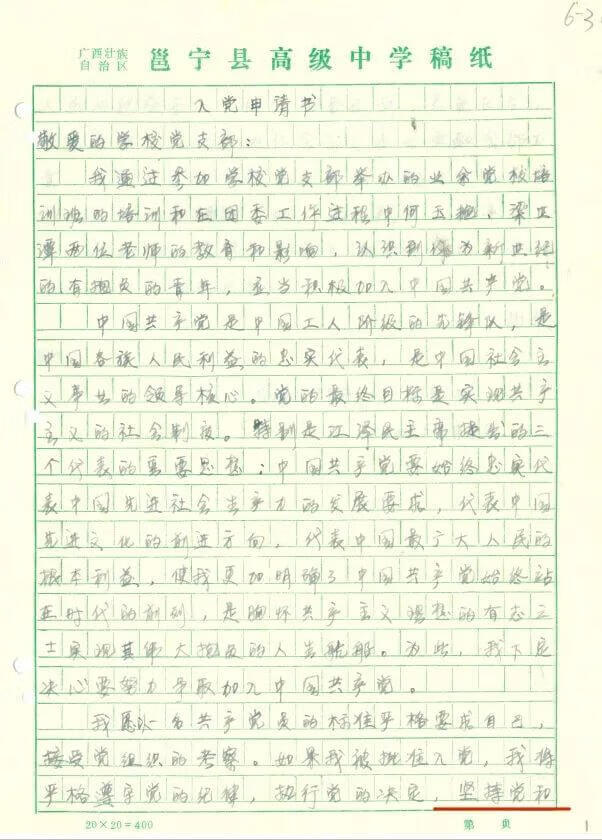 6-3
广西壮族
自治区
邕宁县高级中学稿纸
入党申请书
敬爱的学校党支部：
我通过参加学校党支部举办的业余党校培
训班的培训和在团委工作过程中何玉艳、梁
潭两位老师的教育和影响，认识到作为新世纪
的有抱负的青年，应当积极加入中国共产党。
中国共产党是中国工人阶级的先锋队，是
中国各族人民利益的忠实代表，是中国社会主
义事业的领导核心。党的最终目标是实现共产
主义的社会制度。特别是江泽民主席提出的三
个代表的重要思想：中国共产党要始终忠实代
表中国先进社会生产力的发展要求，代表中国
先进文化的前进方向，代表中国最广大人民的
根本利益，使我更加明确了中国共产党始终站
在时代的前列，是胸怀共产主义理想的有志之
士实现其伟大抱负的人生航船。为此，我下定
决心要努力争取加入中国共产党。
我愿以一名共产党员的标准严格要求自己，
接受党组织的考察。如果我被批准入党，我将
严格遵守党的纪律，执行党的决定，坚持党和
20×20=400
第 页
1